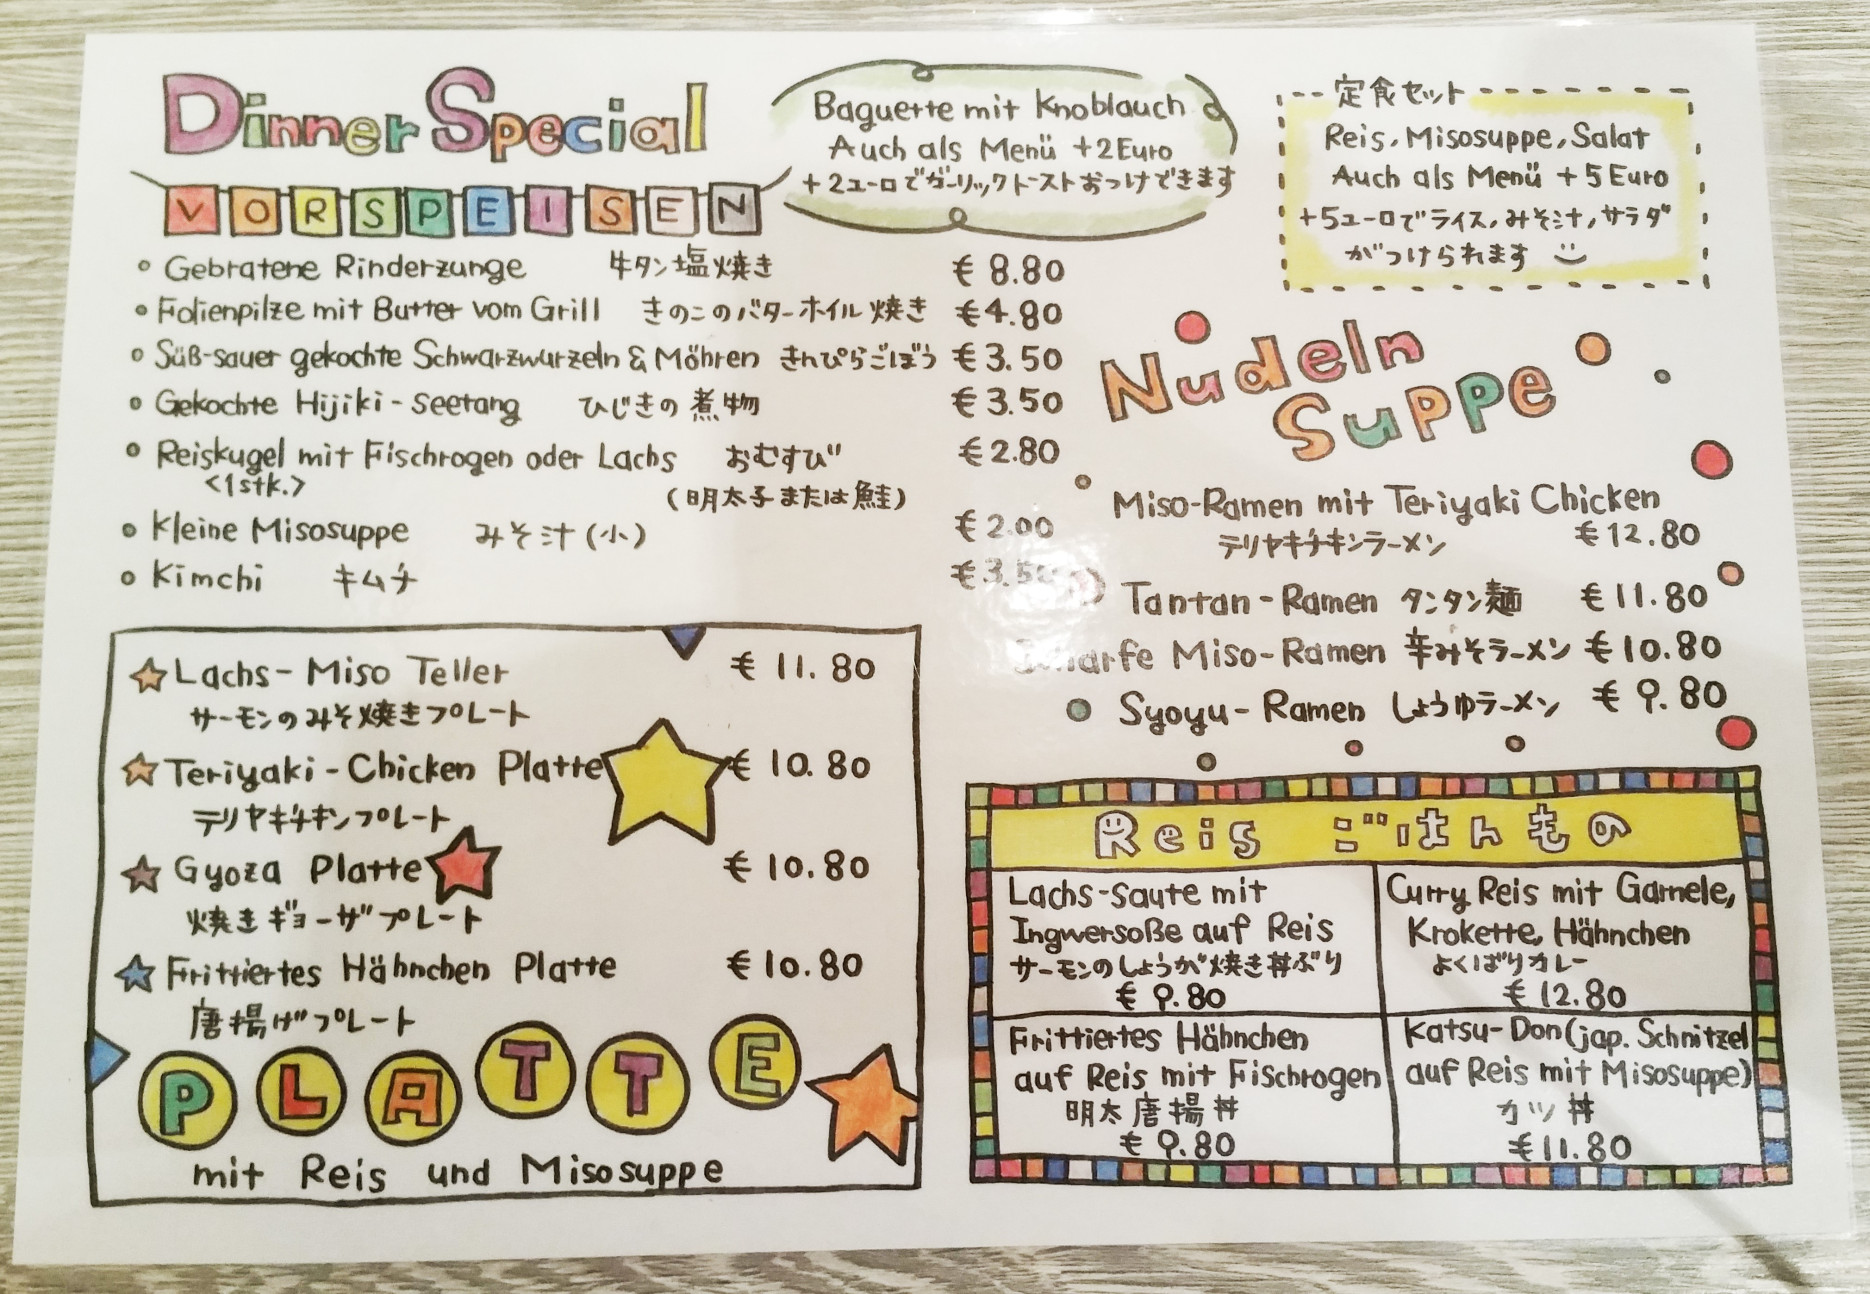 Dinner Special
VORSPEISEN
Baguette mit Knoblauch
Auch als Menü +2Euro
+2ユーロでガーリックトーストおつけできます
定食セット
Reis, Misosuppe, Salat
Auch als Menü +5Euro
+5ユーロでライス,みそ汁,サラダ
がつけられます
Gebratene Rinderzunge 牛タン塩焼き € 8.80
Folienpilze mit Butter vom Grill きのこのバターホイル焼き €4.80
Süß-sauer gekochte Schwarzwurzeln & Möhren きんぴらごぼう €3.50
Gekochte Hijiki-seetang ひじきの煮物 €3.50
Reiskugel mit Fischrogen oder Lachs おむすび €2.80
<1stk.> (明太子または鮭)
Kleine Misosuppe みそ汁(小) €2.00
Kimchi キムチ €3.50
Nudeln
Suppe
Miso-Ramen mit Teriyaki Chicken
テリヤキチキンラーメン €12.80
Tantan-Ramen タンタン麺 €11.80
Scharfe Miso-Ramen 辛みそラーメン €10.80
Syoyu-Ramen しょうゆラーメン € 9.80
Lachs-Miso Teller € 11.80
サーモンのみそ焼きプレート
Teriyaki-Chicken Platte € 10.80
テリヤキチキンプレート
Gyoza Platte € 10.80
焼きギョーザプレート
Frittiertes Hähnchen Platte €10.80
唐揚げプレート
PLATTE
mit Reis und Misosuppe
Reis ごはんもの
Lachs-saute mit
Ingwersoße auf Reis
サーモンのしょうが焼き丼ぶり
€ 9.80
Curry Reis mit Garnele,
Krokette, Hähnchen
よくばりカレー
€ 12.80
Frittiertes Hähnchen
auf Reis mit Fischrogen
明太唐揚丼
€ 9.80
Katsu-Don(jap. Schnitzel
auf Reis mit Misosuppe)
カツ丼
€11.80